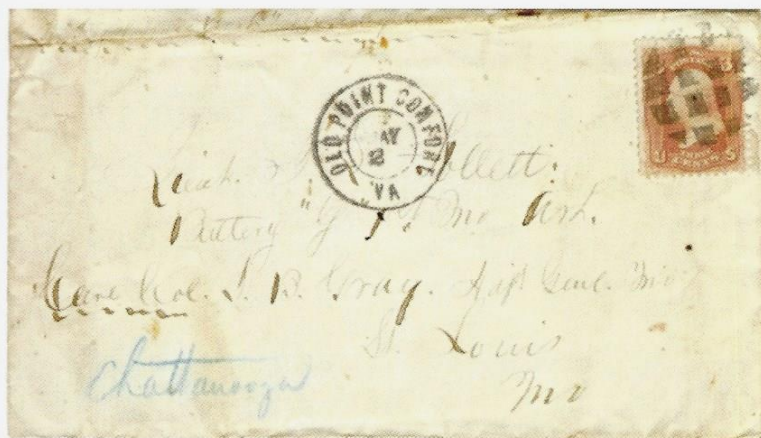 OLD POINT COMFORT
VA
2
3
Lieut. ollett.
Battery "G" 1st Mo Art.
Care Col. S. B. Gray. Adjt Genl. Mo
St. Louis
Mo
Chattanooga
U S
CENTS